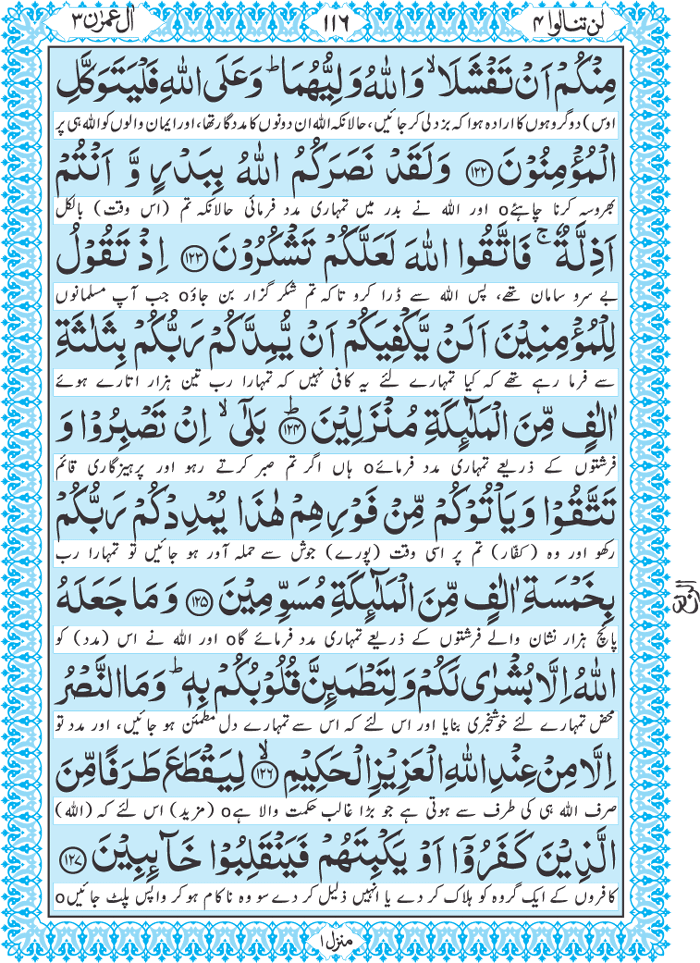 لن تنالوا ٤ ١١٦ اٰل عمرٰن ٣
مِنْكُمْ اَنْ تَفْشَلَا ۙ وَاللّٰهُ وَلِيُّهُمَا ؕ وَعَلَى اللّٰهِ فَلْيَتَوَكَّلِ
اوس) دو گروہوں کا ارادہ ہوا کہ بزدلی کر جائیں، حالانکہ اللہ ان دونوں کا مددگار تھا، اور ایمان والوں کو اللہ ہی پر
الْمُؤْمِنُوْنَ ﴿۱۲۲﴾ وَلَقَدْ نَصَرَكُمُ اللّٰهُ بِبَدْرٍ وَّ اَنْتُمْ
بھروسہ کرنا چاہئےo اور اللہ نے بدر میں تمہاری مدد فرمائی حالانکہ تم (اس وقت) بالکل
اَذِلَّةٌ ۚ فَاتَّقُوا اللّٰهَ لَعَلَّكُمْ تَشْكُرُوْنَ ﴿۱۲۳﴾ اِذْ تَقُوْلُ
بے سرو سامان تھے، پس اللہ سے ڈرا کرو تاکہ تم شکر گزار بن جاؤo جب آپ مسلمانوں
لِلْمُؤْمِنِيْنَ اَلَنْ يَّكْفِيَكُمْ اَنْ يُّمِدَّكُمْ رَبُّكُمْ بِثَلٰثَةِ
سے فرما رہے تھے کہ کیا تمہارے لئے یہ کافی نہیں کہ تمہارا رب تین ہزار اتارے ہوئے
اٰلٰفٍ مِّنَ الْمَلٰٓئِكَةِ مُنْزَلِيْنَ ﴿۱۲۴﴾ؕ بَلٰٓى ۙ اِنْ تَصْبِرُوْا وَ
فرشتوں کے ذریعے تمہاری مدد فرمائےo ہاں اگر تم صبر کرتے رہو اور پرہیزگاری قائم
تَتَّقُوْا وَيَاْتُوْكُمْ مِّنْ فَوْرِهِمْ هٰذَا يُمْدِدْكُمْ رَبُّكُمْ
رکھو اور وہ (کفّار) تم پر اسی وقت (پورے) جوش سے حملہ آور ہو جائیں تو تمہارا رب
بِخَمْسَةِ اٰلٰفٍ مِّنَ الْمَلٰٓئِكَةِ مُسَوِّمِيْنَ ﴿۱۲۵﴾ وَمَا جَعَلَهُ
پانچ ہزار نشان والے فرشتوں کے ذریعے تمہاری مدد فرمائے گاo اور اللہ نے اس (مدد) کو
اللّٰهُ اِلَّا بُشْرٰى لَكُمْ وَلِتَطْمَئِنَّ قُلُوْبُكُمْ بِهٖ ؕ وَمَا النَّصْرُ
محض تمہارے لئے خوشخبری بنایا اور اس لئے کہ اس سے تمہارے دل مطمئن ہو جائیں، اور مدد تو
اِلَّا مِنْ عِنْدِ اللّٰهِ الْعَزِيْزِ الْحَكِيْمِ ﴿۱۲۶﴾ۙ لِيَقْطَعَ طَرَفًا مِّنَ
صرف اللہ ہی کی طرف سے ہوتی ہے جو بڑا غالب حکمت والا ہےo (مزید) اس لئے کہ (اللہ)
الَّذِيْنَ كَفَرُوْٓا اَوْ يَكْبِتَهُمْ فَيَنْقَلِبُوْا خَآئِبِيْنَ ﴿۱۲۷﴾
کافروں کے ایک گروہ کو ہلاک کر دے یا انہیں ذلیل کر دے سو وہ ناکام ہو کر واپس پلٹ جائیںo
منزل ۱